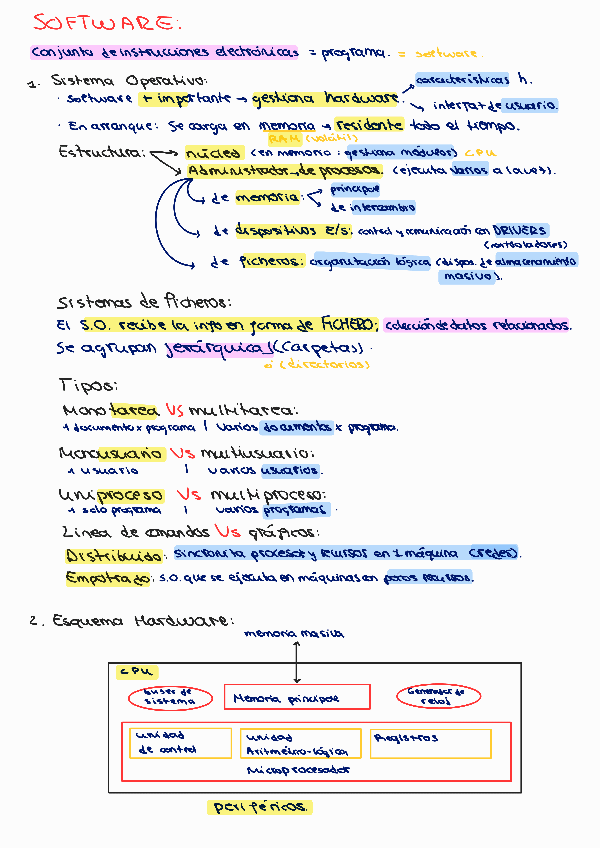 SOFTWARE:
Conjunto de instrucciones electrónicas = programa. = software.
1. Sistema Operativo:
· Software + importante → gestiona hardware. características h.
interfaz de usuario.
· En arranque: Se carga en memoria → residente todo el tiempo.
RAM (volátil)
Estructura: núcleo (en memoria: gestiona módulos) CPU
Administrador de procesos. (ejecuta varios a la vez).
de memoria: principal
de intercambio
de dispositivos E/S: control y comunicación con DRIVERS
(controladores)
de ficheros: organización lógica (dispos. de almacenamiento
masivo).
Sistemas de ficheros:
El S.O. recibe la info en forma de FICHERO, colección de datos relacionados.
Se agrupan jerárquica (carpetas).
(directorios)
Tipos:
Monotarea VS multitarea:
1 documento x programa | varios documentos x programa.
Monousuario Vs multiusuario:
1 usuario | varios usuarios.
Uniproceso Vs multiproceso:
1 solo programa | varios programas.
Línea de comandos Vs gráficos:
Distribuido: sincroniza procesos y recursos en 1 máquina (redes).
Empotrado: S.O. que se ejecuta en máquinas con pocos recursos.
2. Esquema Hardware:
memoria masiva
CPU
Buses de
sistema
Memoria principal
Generador de
reloj
Unidad
de control
Unidad
Aritmético-lógica
Registros
Microprocesador
periféricos.